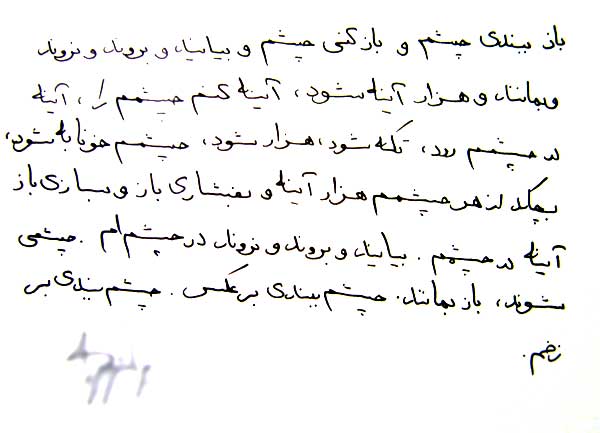 باز ببندی چشم و باز کنی چشم و بیایند و بروند و نروند
و بمانند و هزار آینه شود، آینه کنم چشمم را، آینه
در چشمم رود، تکه شود، هزار شود، چشمم خونابه شود،
بچکد از هر چشمم هزار آینه و بفشاری باز و بسازی باز
آینه در چشمم. بیایند و بروند و نروند در چشم‌ام. چشمی
شوند، باز بمانند. چشم ببندی برعکس. چشم ببندی بر
زخم.